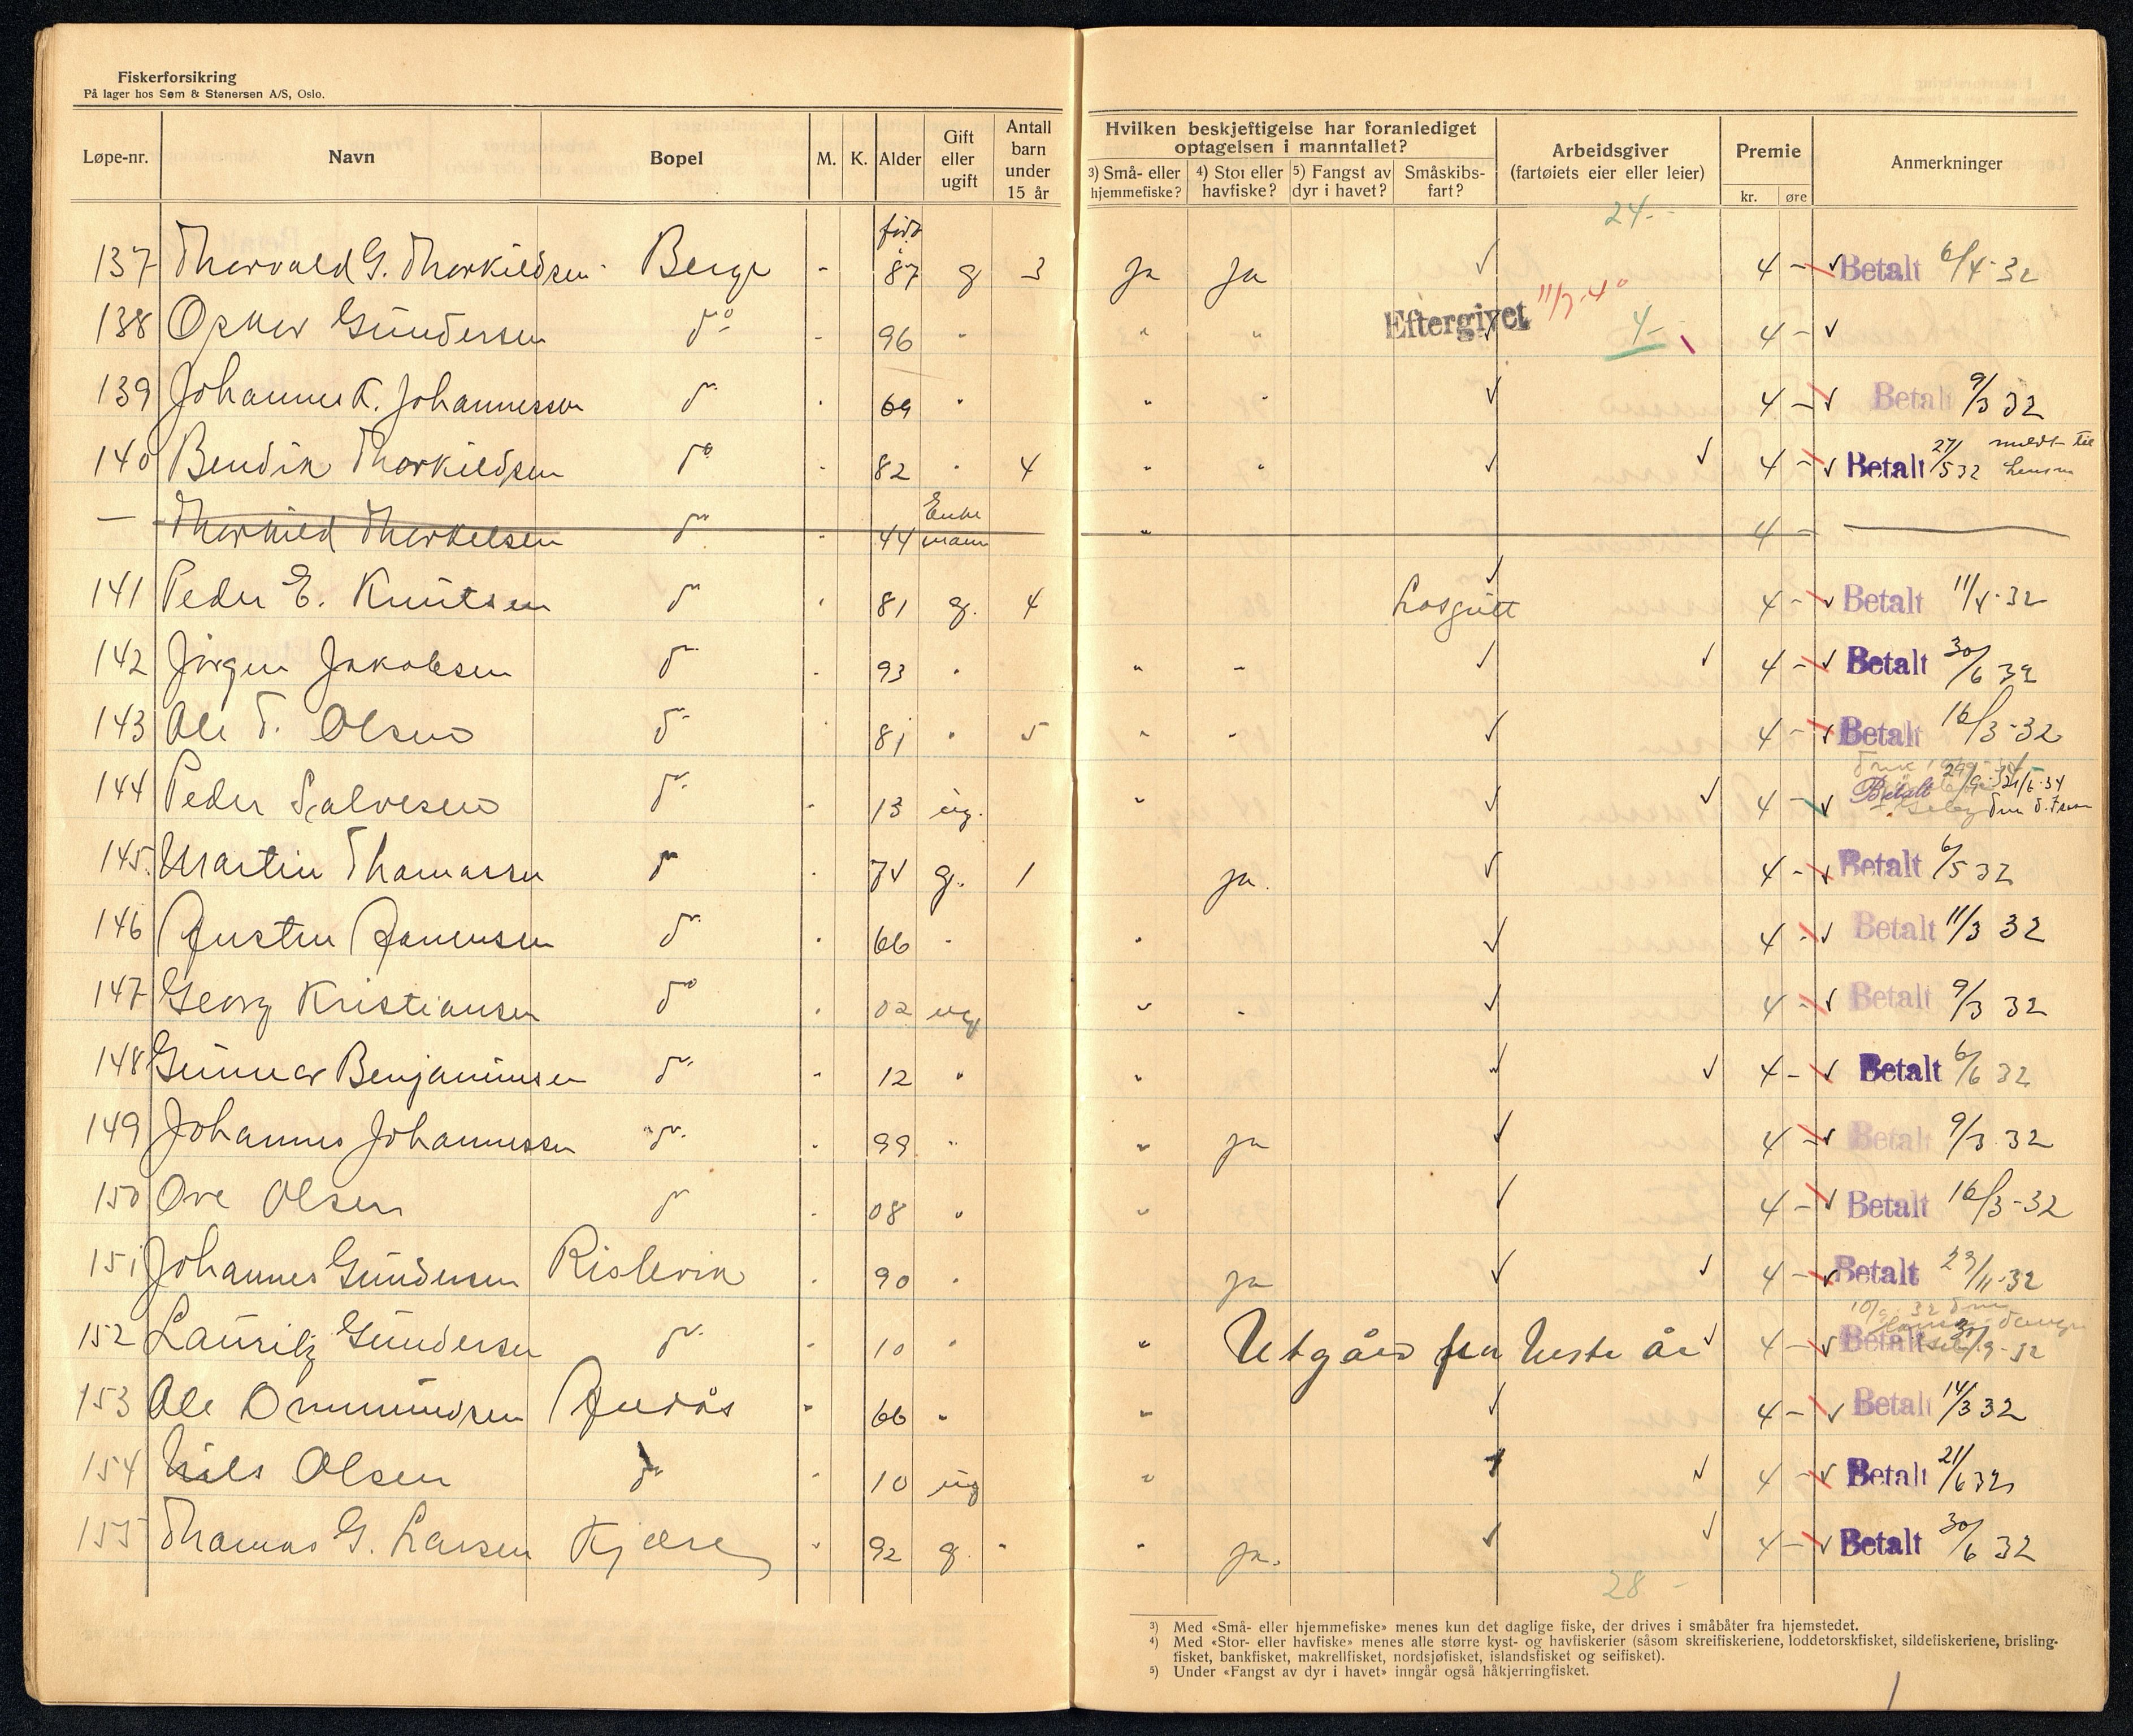 Fiskerforsikring
På lager hos Sem & Stenersen A/S, Oslo.
Løpe-nr. Navn Bopel M. K. Alder Gift eller ugift Antall barn under 15 år Hvilken beskjeftigelse har foranlediget optagelsen i manntallet? 3) Små- eller hjemmefiske? 4) Stor eller havfiske? 5) Fangst av dyr i havet? Småskibs-fart? Arbeidsgiver (fartøiets eier eller leier) Premie kr. øre Anmerkninger
24-
født
137 Thorvald G. Thorkildsen Berge - 87 g 3 ja ja √ 4 - √ Betalt 6/4-32
138 Oskar Gundersen do - 96 " " " Eftergivet 11/7-40 4- 4 - √
139 Johannes K. Johannessen do " 69 " " " √ 4 - √ Betalt 9/3 32
140 Bendik Thorkildsen do " 82 " 4 " " √ √ 4 - √ Betalt 27/5 32 meldt til
— Thorkild Thorkelsen do " 44 Enke mann " 4 - —
141 Peder E. Knutsen do " 81 g. 4 Losgutt √ 4 - √ Betalt 11/4-32
142 Jørgen Jakobsen do " 93 " " " √ √ 4 - √ Betalt 30/6 32
143 Ole T. Olsen do " 81 " 5 " " √ 4 - √ Betalt 16/3-32
144 Peder Salvesen do " 13 ug. " √ √ 4 - √ Betalt
145. Martin Thomassen do " 74 g. 1 ja. √ 4 - √ Betalt 6/5 32
146 Gustin Danensen do " 66 " " √ 4 - √ Betalt 11/3 32
147 Georg Kristiansen do " 02 ug " " √ 4 - √ Betalt 9/3 32
148 Gunnar Benjaminsen do " 12 " " √ √ 4 - √ Betalt 6/6 32
149 Johannes Johannessen do " 99 " " ja √ 4 - √ Betalt 9/3 32
150 Ove Olsen do " 08 " " √ 4 - √ Betalt 16/3-32
151 Johannes Gundersen Rislevik " 90 " ja √ √ 4 - √ Betalt 23/11-32
152 Lauritz Gundersen do " 10 " " Utgård fra neste år √ 4 - √ Betalt
153 Ole Ommundsen " 66 " " √ 4 - √ Betalt 14/3 32
154 Nils Olsen do " 10 ug " √ √ 4 - √ Betalt 21/6 32
155 Thomas G. Larsen " 92 g. " " ja. √ √ 4 - √ Betalt 30/6 32
28 -
3) Med «Små- eller hjemmefiske» menes kun det daglige fiske, der drives i småbåter fra hjemstedet.
4) Med «Stor- eller havfiske» menes alle større kyst- og havfiskerier (såsom skreifiskeriene, loddetorskfisket, sildefiskeriene, brisling-
fisket, bankfisket, makrellfisket, nordsjøfisket, islandsfisket og seifisket).
5) Under «Fangst av dyr i havet» inngår også håkjerringfisket.